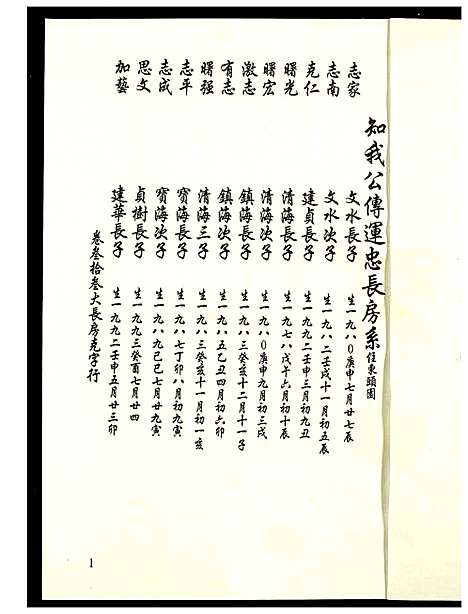 知我公傳運忠長房系 住東頭園
志家 文水長子 生一九八〇庚申七月廿七辰
志南 文水次子 生一九八二壬戌十一月初五辰
克仁 建貞長子 生一九九二壬申三月初九丑
曙光 清海長子 生一九七八戊午六月初十辰
曙宏 清海次子 生一九八〇庚申九月初三戌
激志 鎮海長子 生一九八三癸亥十二月十一子
有志 鎮海次子 生一九八五乙丑四月初六卯
曙强 清海三子 生一九八三癸亥十一月初一亥
志平 寶海長子 生一九八七丁卯八月初九寅
志成 寶海次子 生一九八九己巳七月廿九寅
思文 貞樹長子 生一九九三癸酉七月廿四
加藝 建華長子 生一九九二壬申五月廿三卯
卷叁拾叁大長房克字行
1